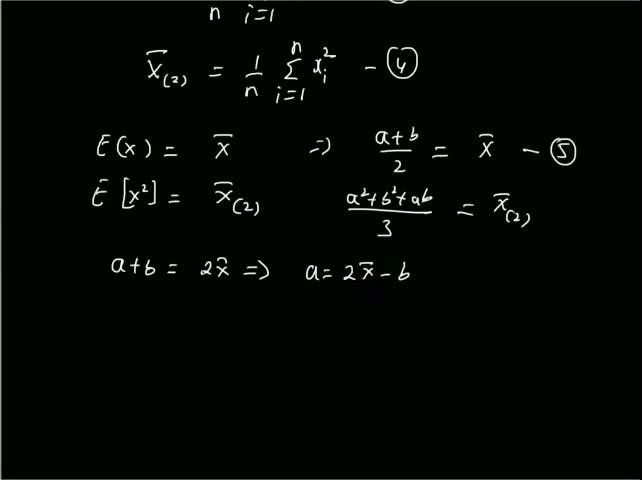 n i=1
X̄(2) = 1/n Σ(i=1 to n) xᵢ² - ④
E(x) = x̄ ⇒ (a+b)/2 = x̄ - ⑤
E[x²] = x̄(2) (a²+b²+ab)/3 = x̄(2)
a+b = 2x̄ ⇒ a = 2x̄ - b